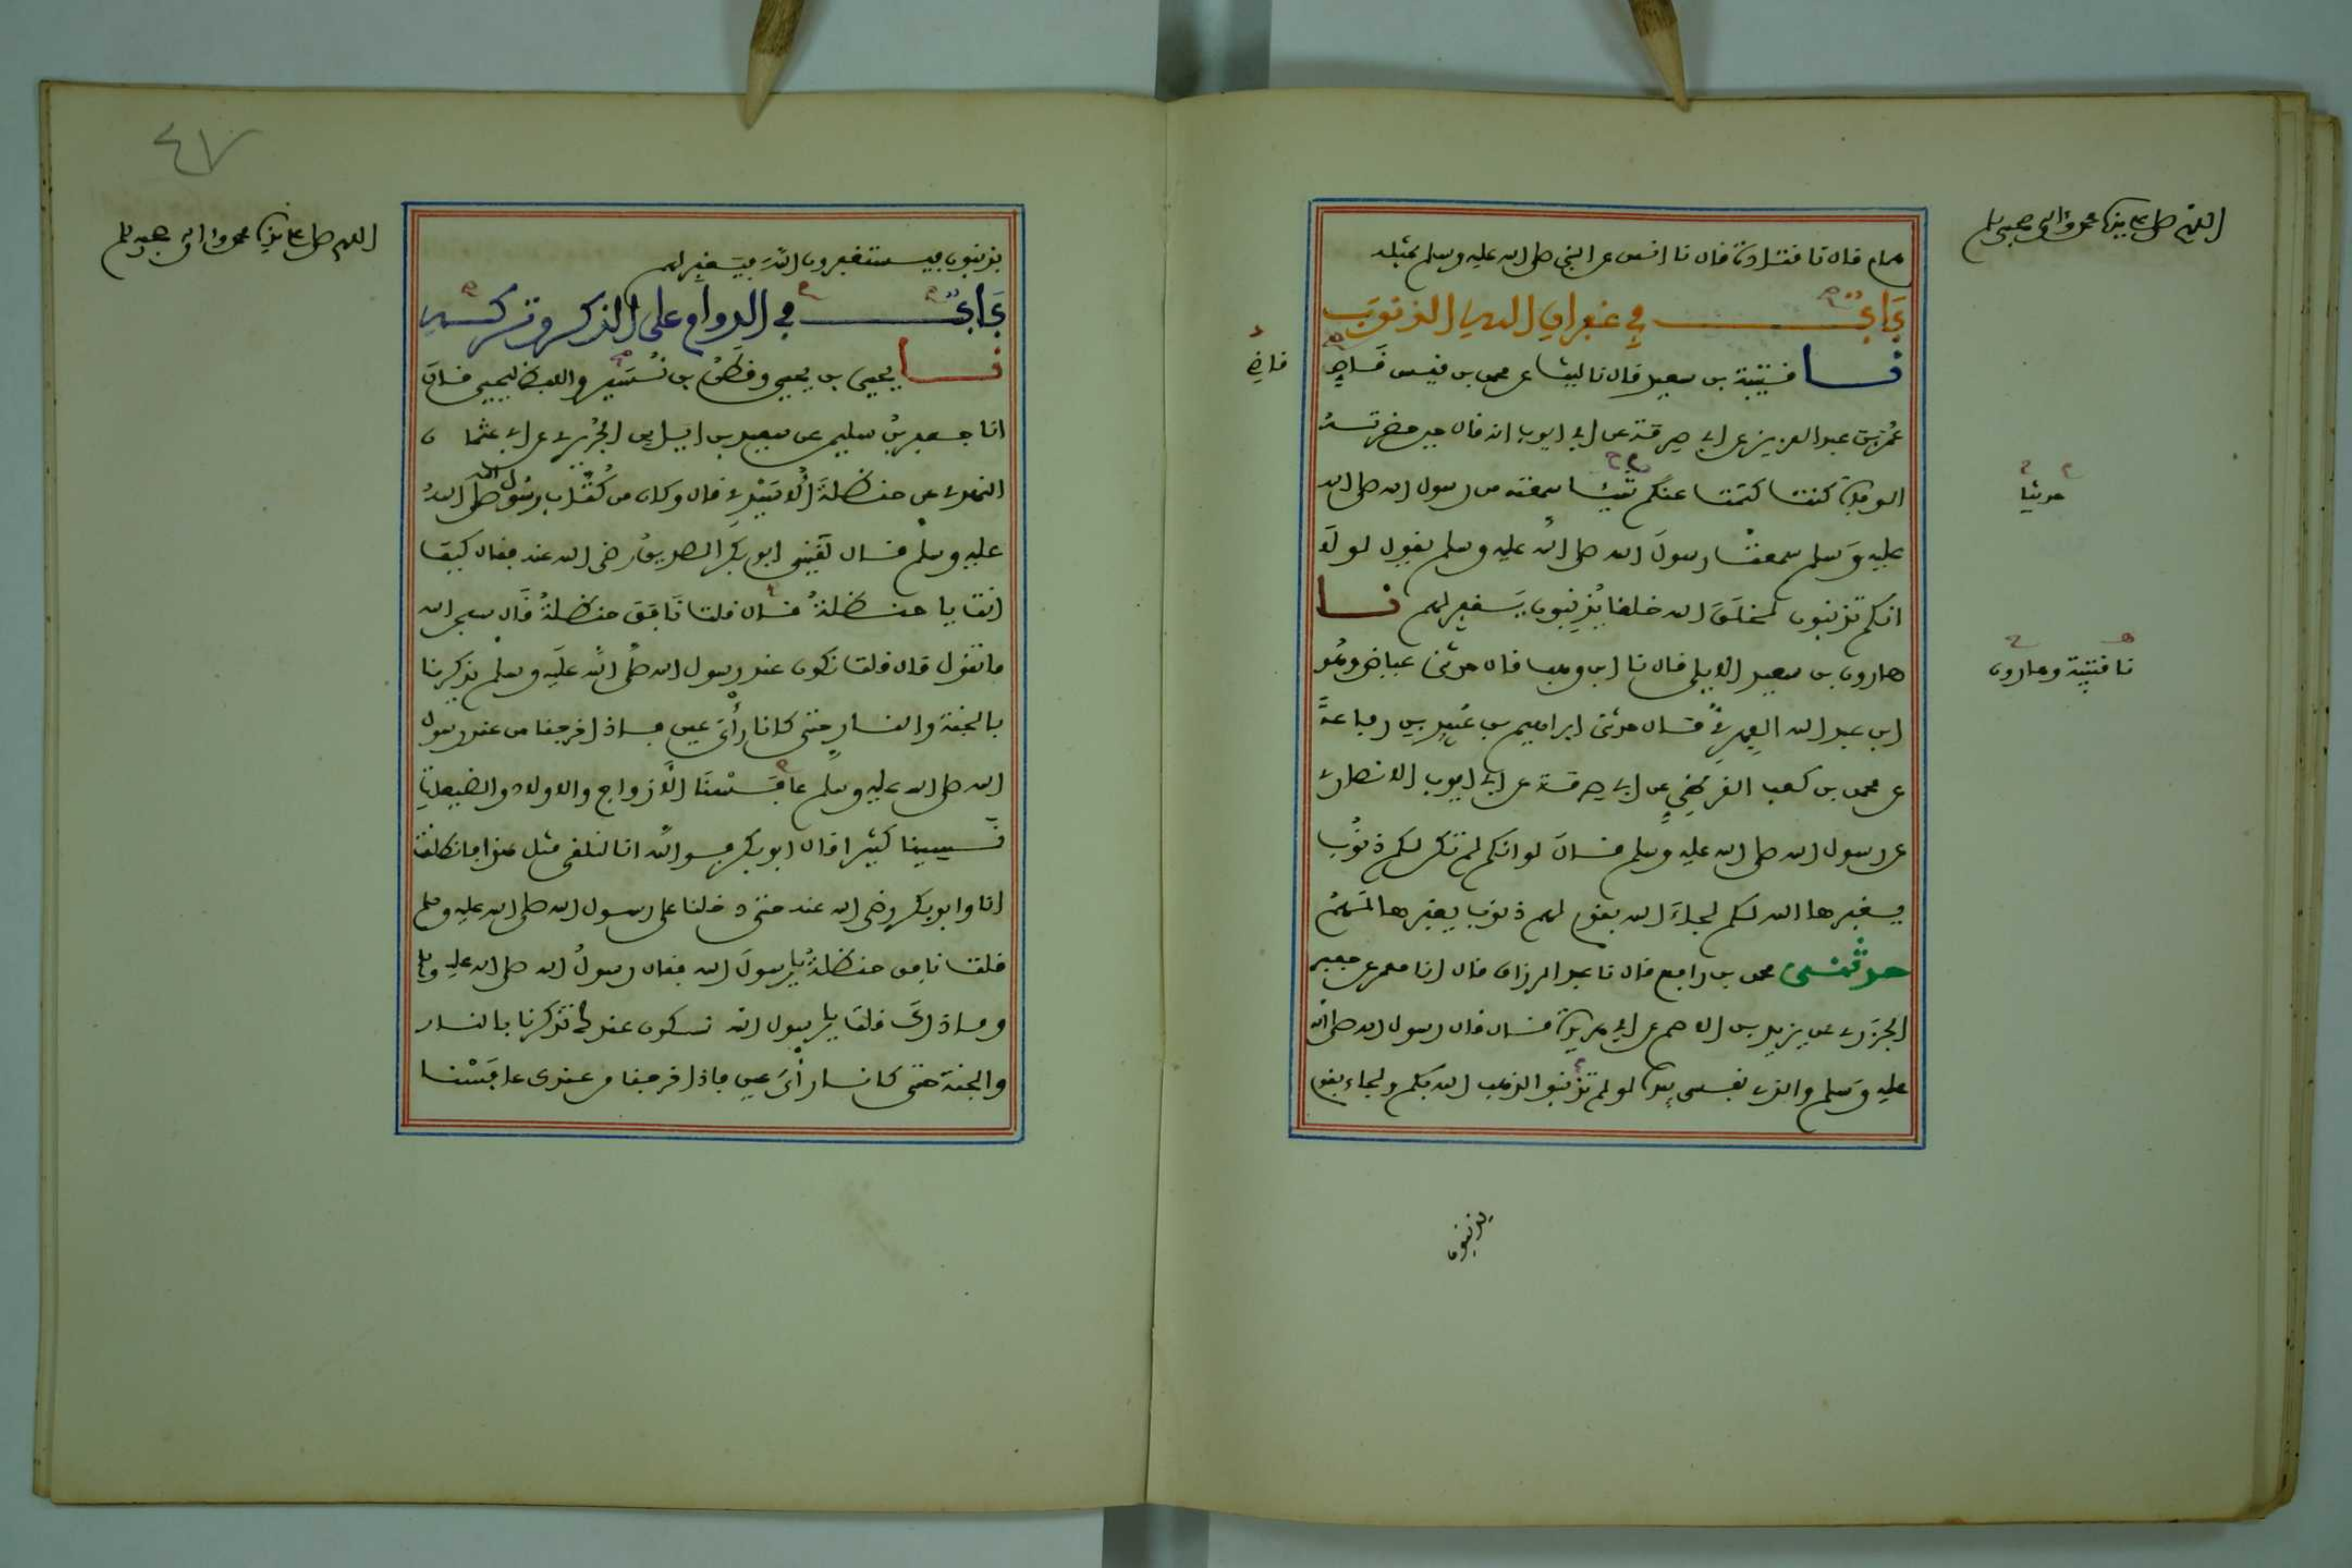 اللهم صل على نبينا محمد وآله وصحبه وسلم
همام قال نا قتادة قال نا انس عن النبي صلى الله عليه وسلم بمثله
باب في غفران الله الذنوب
نا قتيبة بن سعيد قال نا ليث عن محمد بن قيس قاص
قاضي
عمر بن عبد العزيز عن ابي صرمة عن ابي ايوب انه قال حين حضرته
الوفاة كنت كتمت عنكم شيئا سمعته من رسول الله صلى الله
حديثا
عليه وسلم سمعت رسول الله صلى الله عليه وسلم يقول لولا
انكم تذنبون لخلق الله خلقا يذنبون يغفر لهم نا
هارون بن سعيد الايلي قال نا ابن وهب قال حدثني عياض وهو
نا قتيبة وهارون
ابن عبد الله الفهري قال حدثني ابراهيم بن عبيد بن رفاعة
عن محمد بن كعب القرظي عن ابي صرمة عن ابي ايوب الانصاري
عن رسول الله صلى الله عليه وسلم قال لو انكم لم تكن لكم ذنوب
يغفرها الله لكم لجاء الله بقوم لهم ذنوب يغفرها لهم
حدثني محمد بن رافع قال نا عبد الرزاق قال انا معمر عن جعفر
الجزري عن يزيد بن الاصم عن ابي هريرة قال قال رسول الله صلى الله
عليه وسلم والذي نفسي بيده لو لم تذنبوا لذهب الله بكم ولجاء بقوم
يذنبون
٤٧
اللهم صل على نبينا محمد وآله وصحبه وسلم
يذنبون فيستغفرون الله فيغفر لهم
باب في الدوام على الذكر وتركه
نا يحيى بن يحيى وقطن بن نسير واللفظ ليحيى قال
انا جعفر بن سليمن عن سعيد بن اياس الجريري عن ابي عثمان
النهدي عن حنظلة الاسيدي قال وكان من كتاب رسول الله صلى الله
عليه وسلم قال لقيني ابو بكر الصديق رضي الله عنه فقال كيف
انت يا حنظلة قال قلت نافق حنظلة قال سبحان الله
ما تقول قال قلت نكون عند رسول الله صلى الله عليه وسلم يذكرنا
بالجنة والنار حتى كانا رأي عين فاذا خرجنا من عند رسول
الله صلى الله عليه وسلم عافسنا الازواج والاولاد والضيعات
نسينا كثيرا قال ابو بكر فوالله انا لنلقى مثل هذا فانطلقت
انا وابو بكر رضي الله عنه حتى دخلنا على رسول الله صلى الله عليه وسلم
قلت نافق حنظلة يا رسول الله فقال رسول الله صلى الله عليه وسلم
وما ذاك قلت يا رسول الله نكون عندك تذكرنا بالنار
والجنة حتى كانا رأي عين فاذا خرجنا من عندك عافسنا